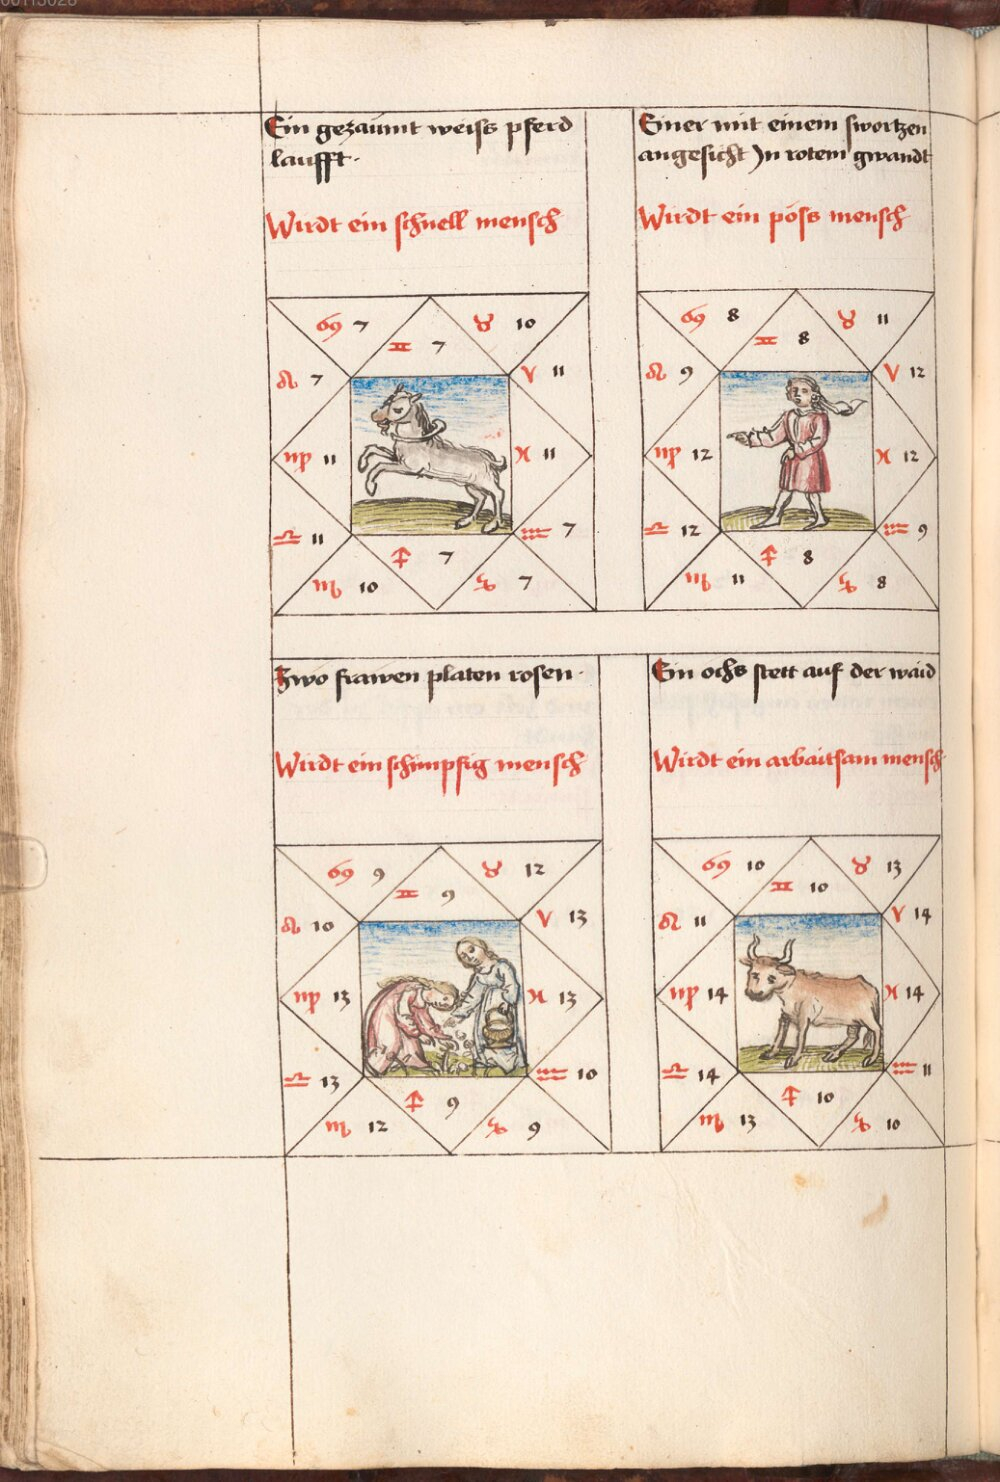 Ein gezaumt weiss pferd
laufft.
Wirdt ein schnell mensch
♋ 7
♉ 10
♊ 7
♌ 7
♈ 11
♍ 11
♓ 11
♎ 11
♒ 7
♐ 7
♏ 10
♑ 7
Einer mit einem swortzen
angesicht Jn rotem gwandt
Wirdt ein pöss mensch
♋ 8
♉ 11
♊ 8
♌ 9
♈ 12
♍ 12
♓ 12
♎ 12
♒ 9
♐ 8
♏ 11
♑ 8
Zwo frawen platen rosen.
Wirdt ein schimpfig mensch
♋ 9
♉ 12
♊ 9
♌ 10
♈ 13
♍ 13
♓ 13
♎ 13
♒ 10
♐ 9
♏ 12
♑ 9
Ein ochs stett auf der waid
Wirdt ein arbaitsam mensch
♋ 10
♉ 13
♊ 10
♌ 11
♈ 14
♍ 14
♓ 14
♎ 14
♒ 11
♐ 10
♏ 13
♑ 10